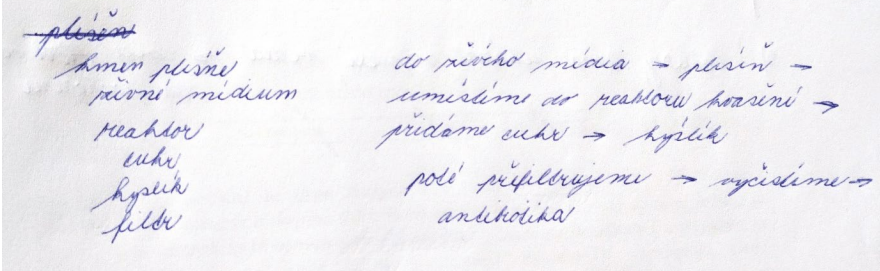 plísěn
kmen plísně
živné médium
reaktor
cukr
kyslík
filtr
do živého média → plísíň →
umístíme do reaktoru kvašení →
přidáme cukr → kyslík
poté přefiltrujeme → vyčistíme →
antibiotika